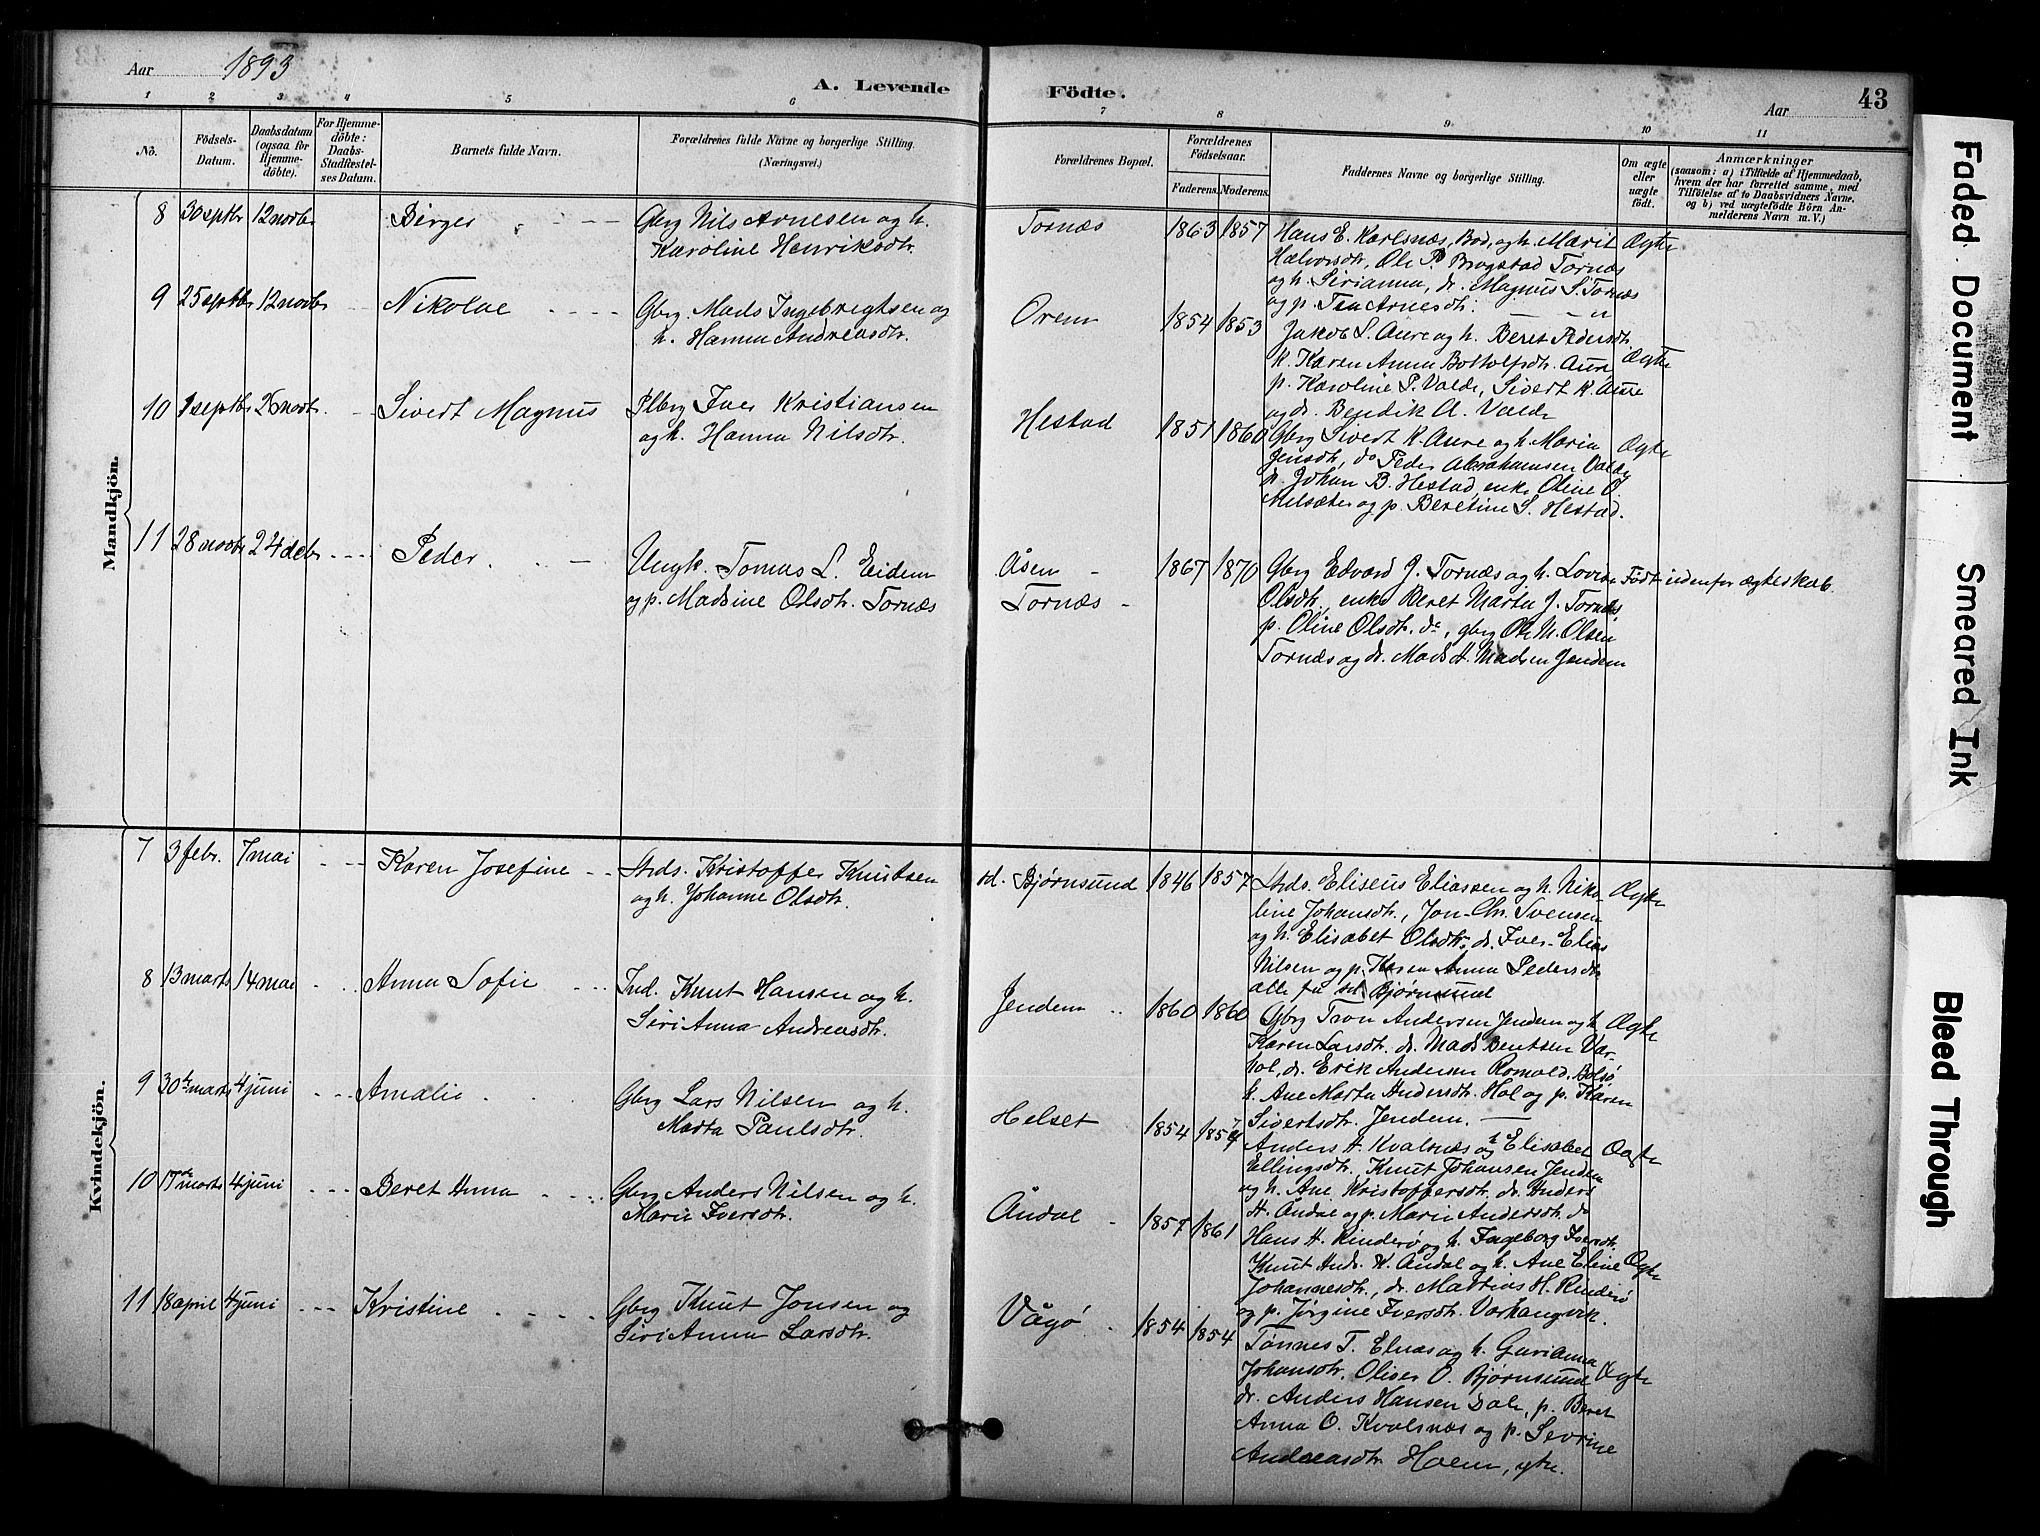 Aar 1893
A. Levende Födte.
Aar 43
1 2 3 4 5 6 7 8 9 10 11
No.
Födsels-
Datum.
Daabsdatum
(ogsaa for
Hjemme-
döbte).
For Hjemme-
döbte:
Daabs-
Stadfæstel-
ses Datum.
Barnets fulde Navn.
Forældrenes fulde Navne og borgerlige Stilling.
(Næringsvei.)
Forældrenes Bopæl.
Forældrenes
Födselsaar.
Faderens. Moderens.
Faddernes Navne og borgerlige Stilling.
Om ægte
eller
uægte
födt.
Anmærkninger
(saasom: a) i Tilfælde af Hjemmedaab,
hvem der har forrettet samme, med
Tilföielse af to Daabsvidners Navne.
og b) ved uægtefödte Börn An-
melderens Navn m. V.)
Mandkjön.
8 30 septbr 12 novbr Birger Gbrg Nils Arnesen og h.
Karoline Henriksdtr.
Tornæs 1863 1857
Hans E. Karlsnæs, Bod, og h. Marit
Halvorsdtr, Ole P. Brogstad Tornæs
og h. Serianna, dr. Magnus S. Tornæs
og p. Tea Arnesdtr.
Ægte
9 25 septbr 12 novbr Nikolae Gbrg. Mads Ingebregtsen og
h. Hanna Andreasdtr.
Orem 1854 1853
Jakob S. Aure og h. Beret Pedersdtr
k. Karen Anna Bottolfsdtr. Aure
p. Karoline P. Valde, Sivert K. Aure
og dr. Bendik A. Valde
Ægte
10 9 septbr 26 novbr. Sivert Magnus Plbrg Iver Kristiansen
og h. Hanna Nilsdtr.
Hestad 1851 1860
Gbrg Sivert K. Aure og h. Maria
Jensdtr, do Peder Abrahamsen Valde
dr. Johan B. Hestad, enke Oline O.
Melsæter og p. Beretine S. Hestad.
Ægte
11 28 novbr 24 debr Peder Ungk. Tomas L. Eidem
og p. Madsine Olsdtr. Tornæs
Åsen
Tornæs
1867 1870
Gbrg Edvard J. Tornæs og h. Lovise
Olsdtr, enke Beret Marta J. Tornæs
p. Oline Olsdtr. do, gbrg Ole M. Olsen
Tornæs og dr. Mads A. Madsen Jendem
Født udenfor ægteskab
Kvindekjön.
7 3 febr. 7 mai Karen Josefine Strds. Kristoffer Knutsen
og h. Johanne Olsdtr.
sd. Bjørnsund 1846 1857
Strds. Eliseus Eliassen og h. Niko-
line Johansdtr., Jon Chr. Svensen
og h. Elisabet Olsdtr, dr. Iver Elias
Nilsen og p. Karen Anna Pedersdtr
alle fra sd. Bjørnsund
Ægte
8 13 marts 14 mai Anna Sofie Ind. Knut Hansen og h.
Siri Anna Andreasdtr.
Jendem 1860 1860
Gbrg Tron Andersen Jendem og h.
Karen Larsdtr. dr. Mads Bentsen Var-
hol, dr. Erik Andersen Romold. Bolsø
k. Ane Marta Andersdtr. Hol og p. Karen
Sivertsdtr. Jendem.
Ægte
9 30te marts 4 juni Amalie Gbrg Lars Nilsen og h.
Marta Paulsdtr.
Helset 1854
Anders H. Kvalsnæs og h. Elisabet
Ellingsdtr. Knut Johansen Jendem
og h. Ane Kristoffersdtr. dr. Anders
H. Åndal og p. Marie Andersdtr. do
Ægte
10 17de marts 4 juni Beret Anna Gbrg Anders Nilsen og h.
Marie Iversdtr.
Åndal 1857 1861
Hans H. Rinderø og h. Ingeborg Iversdtr.
Knut Ands. K. Åndal og h. Ane Eline
Johannesdtr., dr. Mattias H. Rinderø
og p. Jørgine Iversdtr. Varhaugvik.
Ægte
11 18 april 4 juni Kristine Gbrg Knut Jonsen og
Siri Anna Larsdtr.
Vågø 1854 1854
Tønnes T. Elnæs og h. Gurianna
Johansdtr. Oliver O. Bjørnsund
dr. Anders Hansen Dale, p. Beret
Anna O. Kvalsnæs og p. Sevrine
Andreasdtr. Hoem, ytre.
Ægte
Faded Document
Smeared Ink
Bleed Through